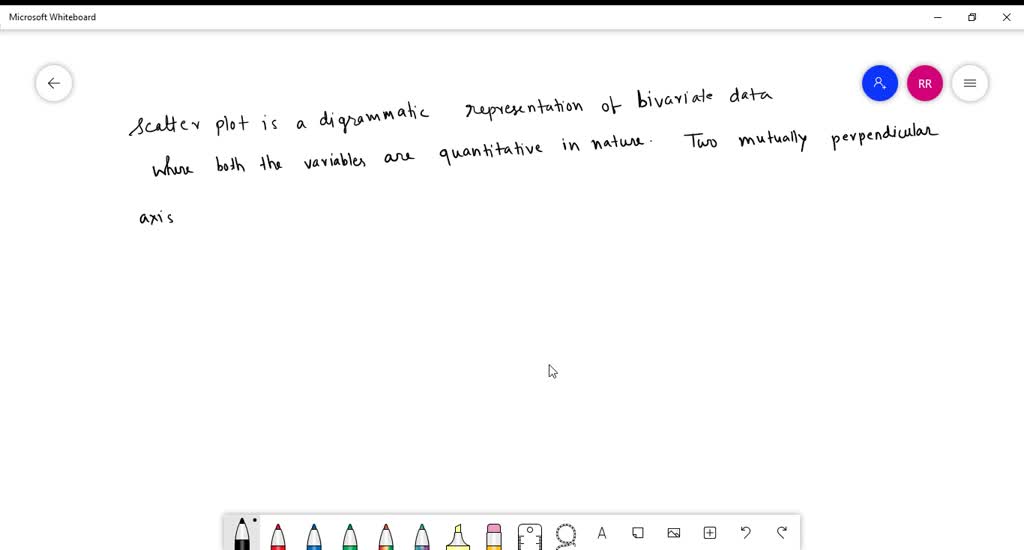 Microsoft Whiteboard
RR
Scatter plot is a digrammatic representation of bivariate data
where both the variables are quantitative in nature. Two mutually perpendicular
axis
A